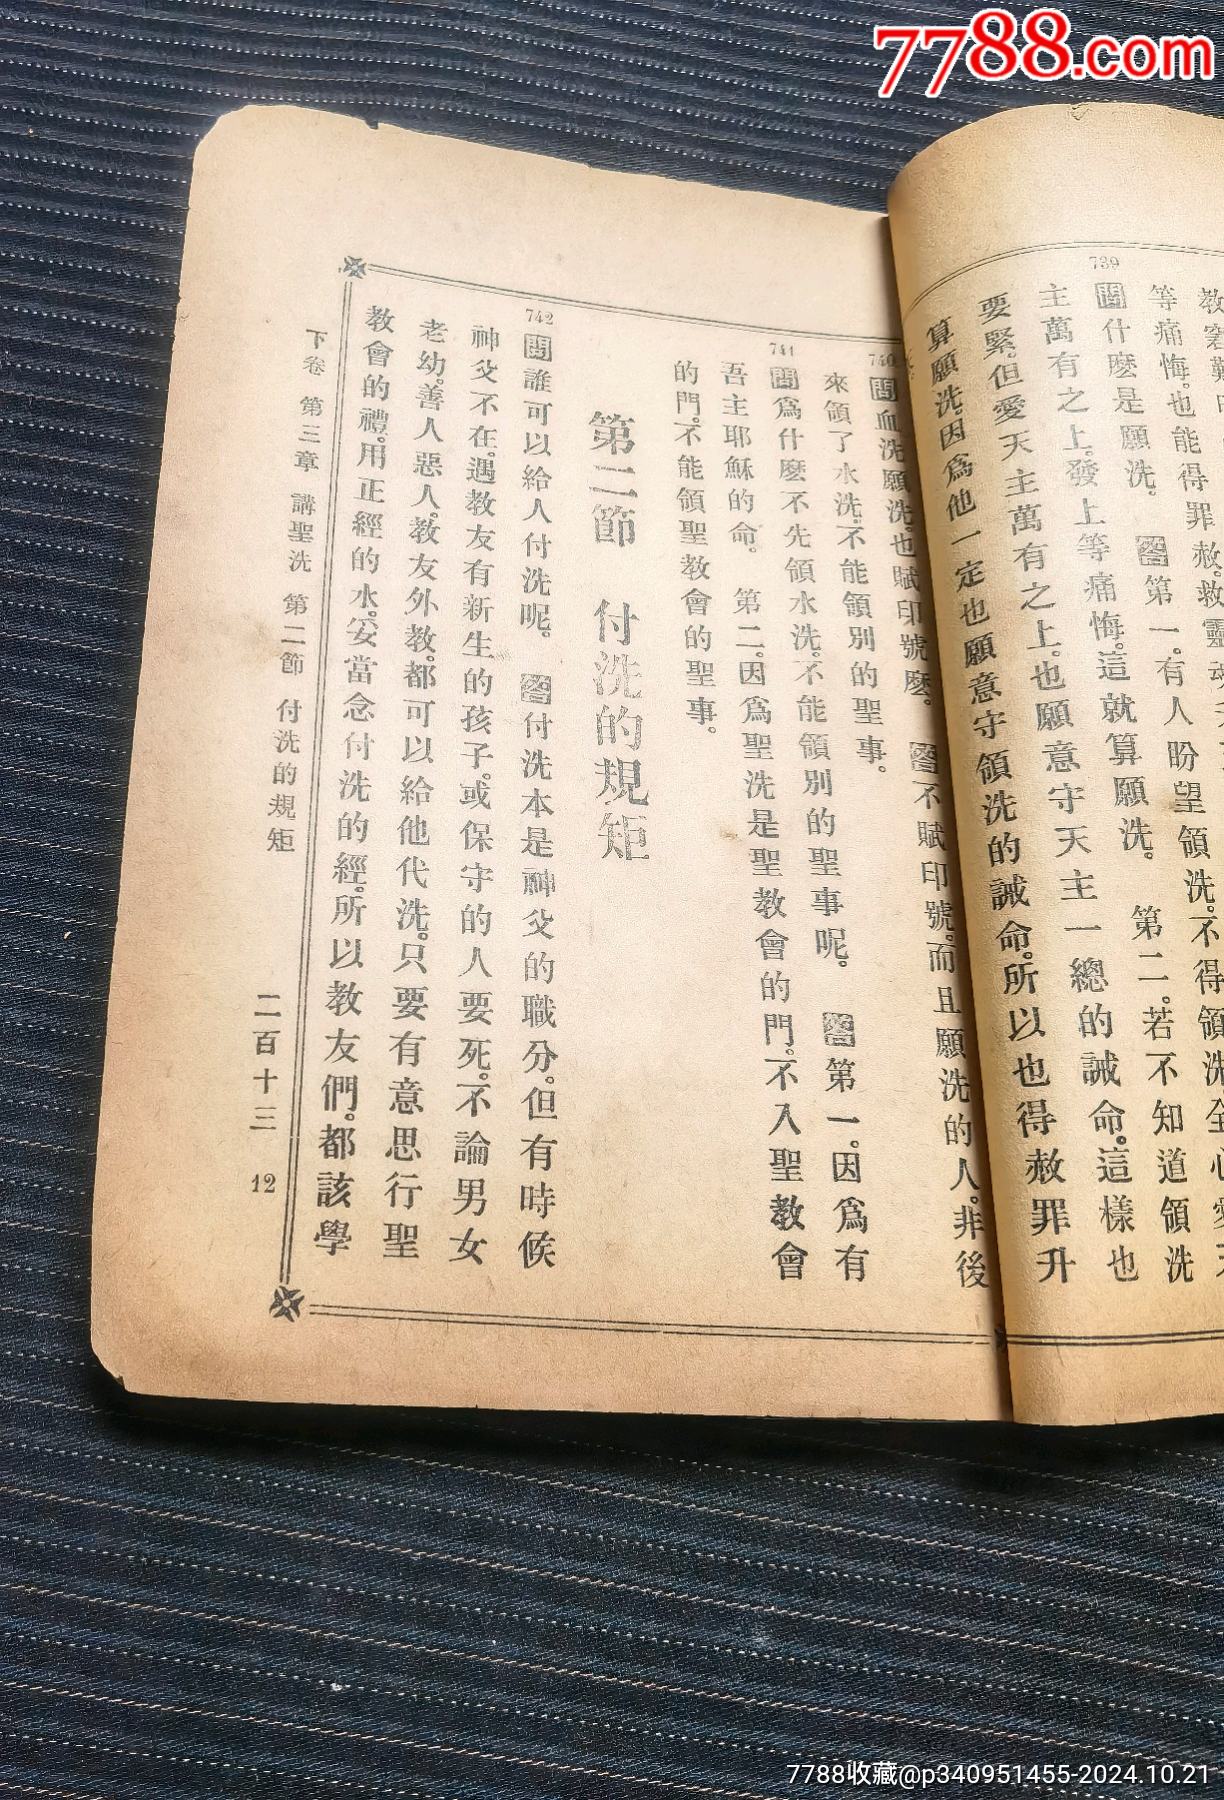 7788.com
等痛悔。也能得罪赦。救靈
739
問什麼是願洗。 答第一。有人盼望領洗。不得領洗
主萬有之上。發上等痛悔。這就算願洗。 第二。若不知道領洗
要緊。但愛天主萬有之上。也願意守天主一總的誡命。這樣也
算願洗。因爲他一定也願意守領洗的誡命。所以也得赦罪升
740
問血洗願洗。也賦印號麼。 答不賦印號。而且願洗的人。非後
來領了水洗。不能領別的聖事。
741
問爲什麼不先領水洗。不能領別的聖事呢。 答第一。因爲有
吾主耶穌的命。 第二。因爲聖洗是聖教會的門。不入聖教會
的門。不能領聖教會的聖事。
第二節 付洗的規矩
742
問誰可以給人付洗呢。 答付洗本是神父的職分。但有時候
神父不在。遇教友有新生的孩子。或保守的人要死。不論男女
老幼。善人惡人。教友外教。都可以給他代洗。只要有意思行聖
教會的禮。用正經的水。妥當念付洗的經。所以教友們。都該學
下卷 第三章 講聖洗 第二節 付洗的規矩 二百十三 12
7788收藏@p340951455-2024.10.21